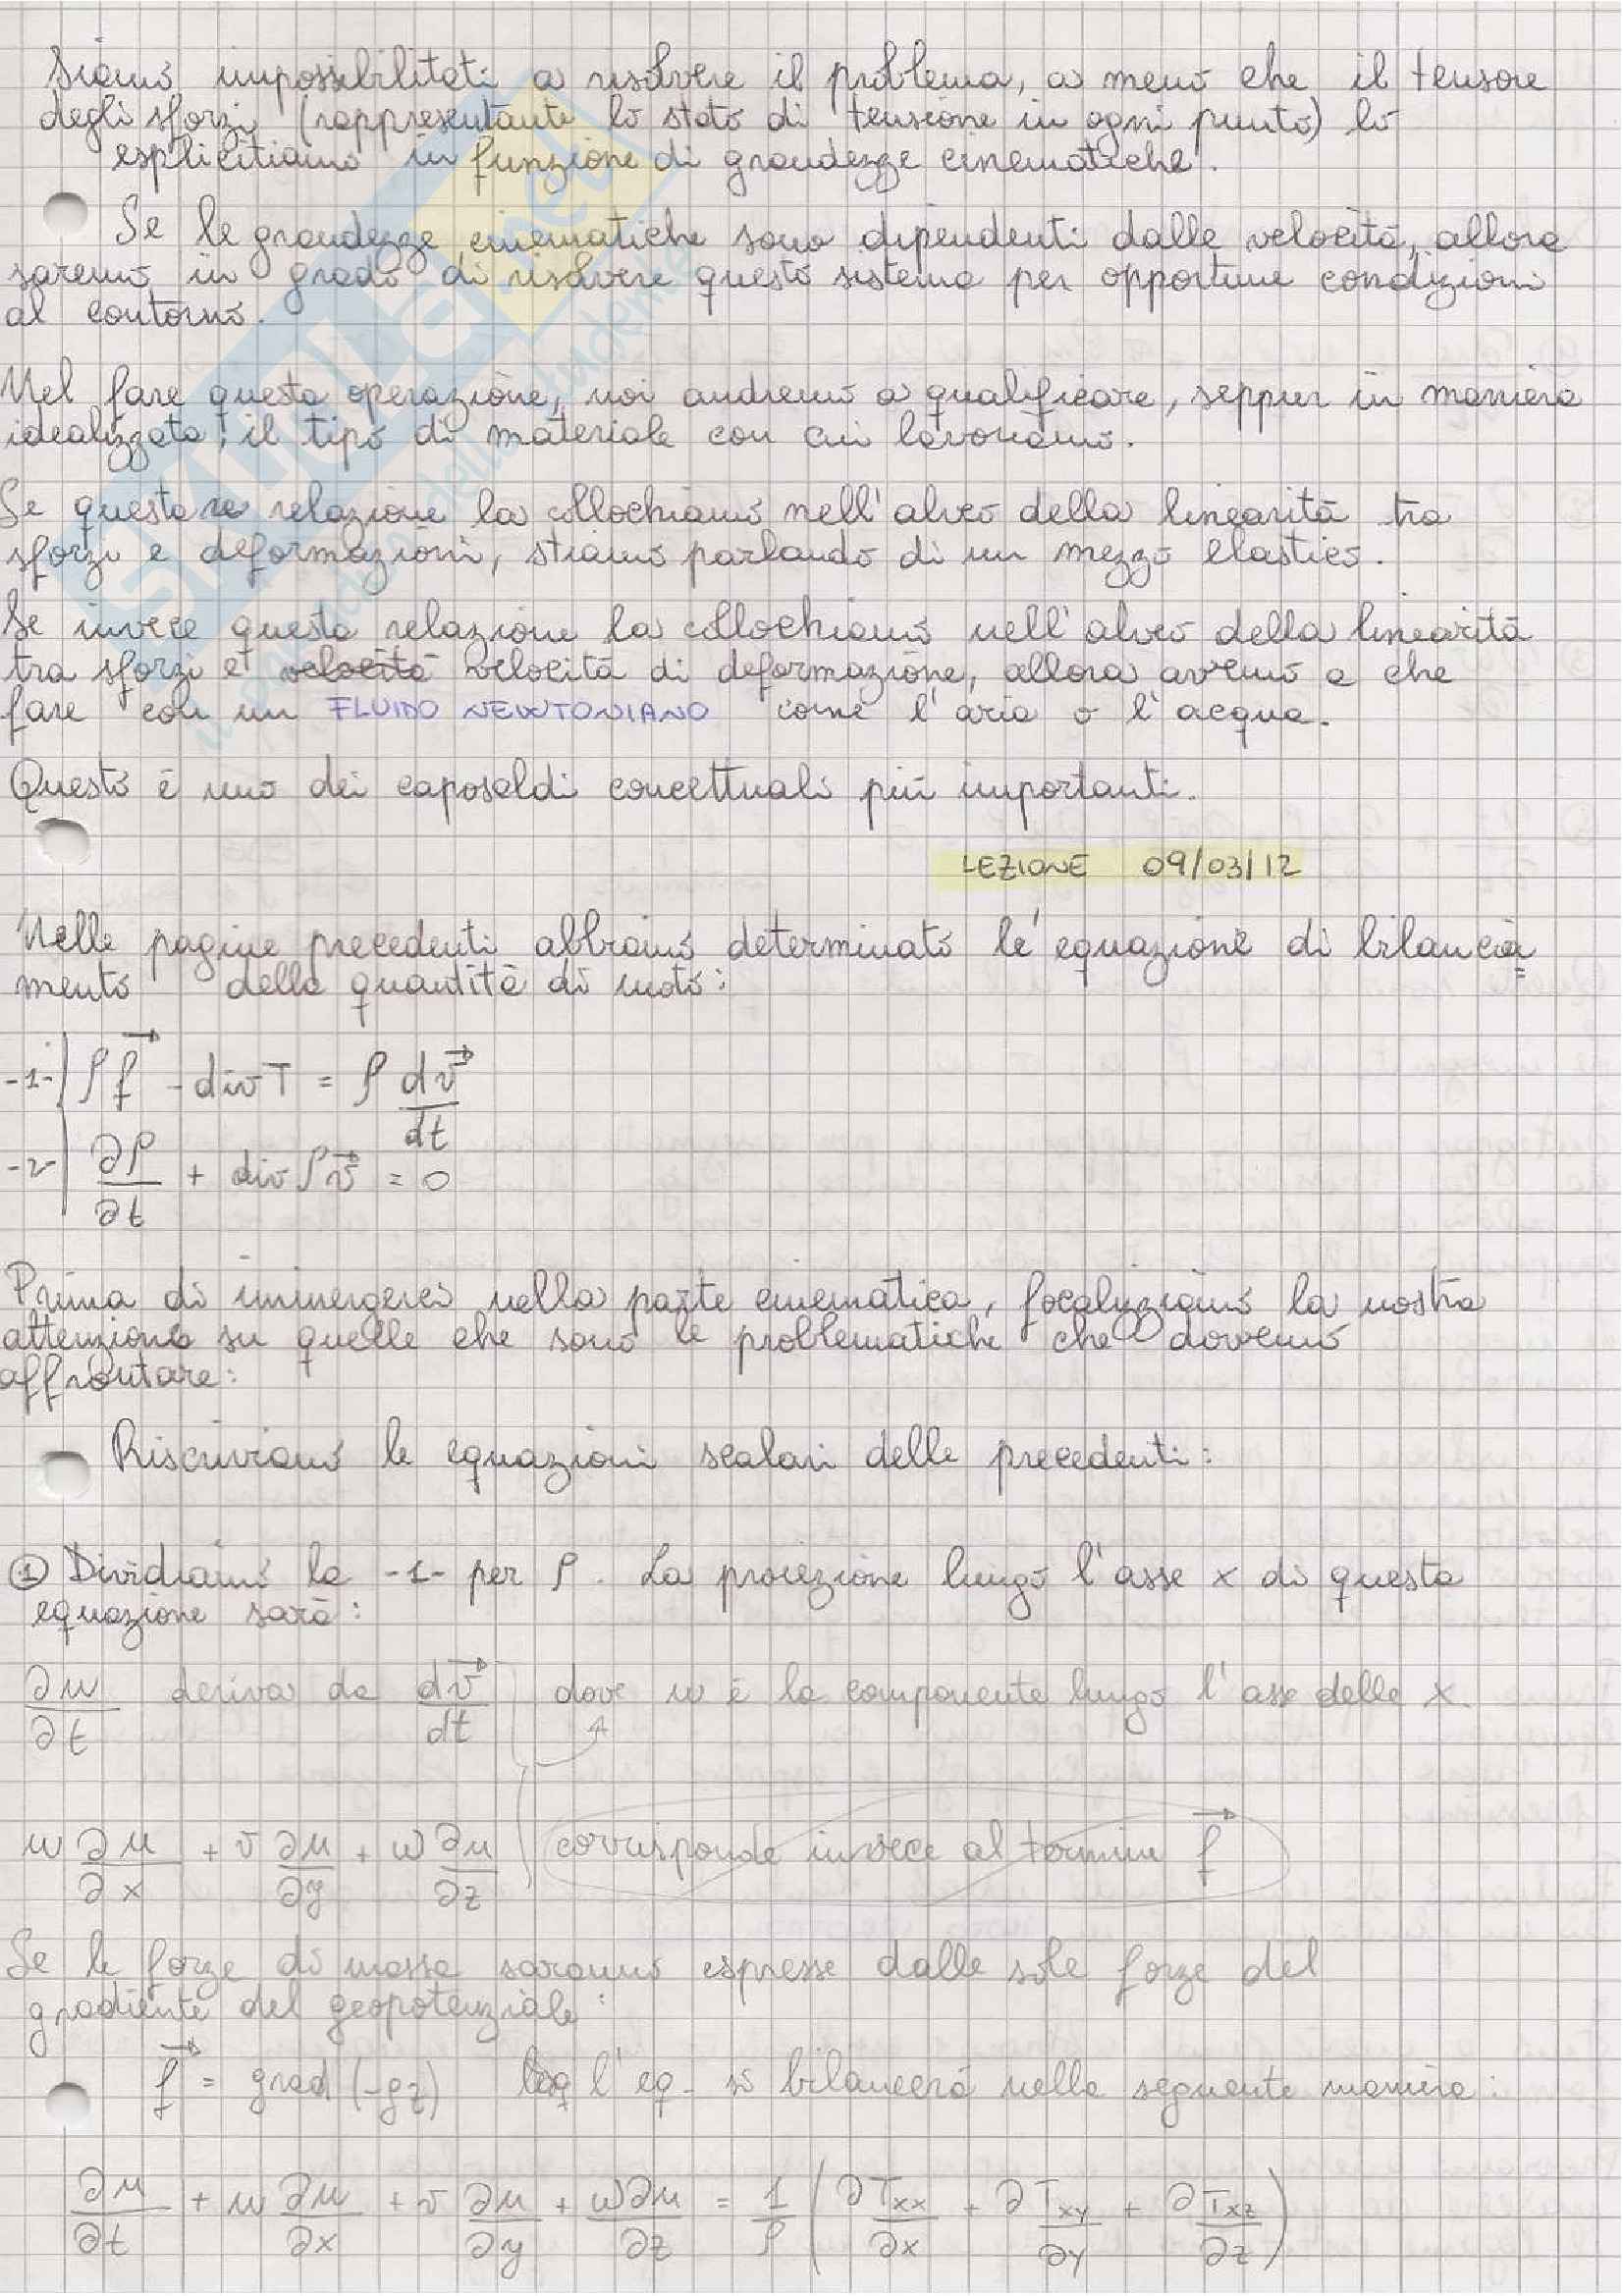 Siamo impossibilitati a risolvere il problema, a meno che il tensore
degli sforzi (rappresentante lo stato di tensione in ogni punto) lo
esplicitiamo in funzione di grandezze cinematiche.
Se le grandezze cinematiche sono dipendenti dalle velocità, allora
saremo in grado di risolvere questo sistema per opportune condizioni
al contorno.
Nel fare questa operazione, noi andremo a qualificare, seppur in maniera
idealizzata, il tipo di materiale con cui lavoriamo.
Se questa re relazione la collochiamo nell'alveo della linearità tra
sforzi e deformazioni, stiamo parlando di un mezzo elastico.
Se invece questa relazione la collochiamo nell'alveo della linearità
tra sforzi e velocità velocità di deformazione, allora avremo a che
fare con un FLUIDO NEWTONIANO come l'aria o l'acqua.
Questo è uno dei caposaldi concettuali più importanti.
LEZIONE 09/03/12
Nelle pagine precedenti abbiamo determinato le equazione di bilancia
mento della quantità di moto:
-1- ρf⃗ - div T = ρ dv⃗/dt
-2- ∂ρ/∂t + div ρv⃗ = 0
Prima di immergerci nella parte cinematica, focalizziamo la nostra
attenzione su quelle che sono le problematiche che dovremo
affrontare:
Riscriviamo le equazioni scalari delle precedenti:
① Dividiamo la -1- per ρ. La proiezione lungo l'asse x di questa
equazione sarà:
∂u/∂t deriva da dv⃗/dt dove u è la componente lungo l'asse delle x.
u ∂u/∂x + v ∂u/∂y + w ∂u/∂z corrisponde invece al termine f⃗
Se le forze di massa saranno espresse dalle sole forze del
gradiente del geopotenziale:
f⃗ = grad (-gz) l'eq. si bilancerà nella seguente maniera:
∂u/∂t + u ∂u/∂x + v ∂u/∂y + w∂u/∂z = 1/ρ (∂Txx/∂x + ∂Txy/∂y + ∂Txz/∂z)